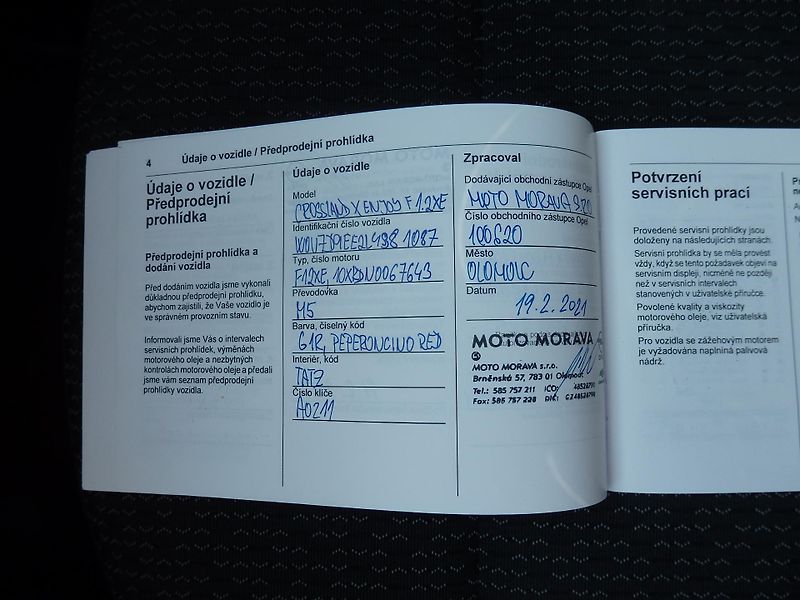 4 Údaje o vozidle / Předprodejní prohlídka
Údaje o vozidle /
Předprodejní
prohlídka
Předprodejní prohlídka a
dodání vozidla
Před dodáním vozidla jsme vykonali
důkladnou předprodejní prohlídku,
abychom zajistili, že Vaše vozidlo je
ve správném provozním stavu.
Informovali jsme Vás o intervalech
servisních prohlídek, výměnách
motorového oleje a nezbytných
kontrolách motorového oleje a předali
jsme vám seznam předprodejní
prohlídky vozidla.
Údaje o vozidle
Model
CROSSLAND X ENJOY F 1.2XE
Identifikační číslo vozidla
Typ, číslo motoru
F12XE, 10XBDN0067643
Převodovka
M5
Barva, číselný kód
G1R, PEPERONCINO RED
Interiér, kód
TATZ
Číslo klíče
A0211
Zpracoval
Dodávající obchodní zástupce Opel
MOTO MORAVA S.R.O
Číslo obchodního zástupce Opel
100620
Město
OLOMOUC
Datum
19.2.2021
MOTO MORAVA
MOTO MORAVA s.r.o.
Brněnská 57, 783 01 Olomouc
Tel.: 585 757 211 IČO: 48526791
Fax: 585 757 228 DIČ: CZ48526791
Potvrzení
servisních prací
Provedené servisní prohlídky jsou
doloženy na následujících stranách.
Servisní prohlídka by se měla provést
vždy, když se tento požadavek objeví na
servisním displeji, nicméně ne později
než v servisních intervalech
stanovených v uživatelské příručce.
Povolené kvality a viskozity
motorového oleje, viz uživatelská
příručka.
Pro vozidla se zážehovým motorem
je vyžadována naplněná palivová
nádrž.